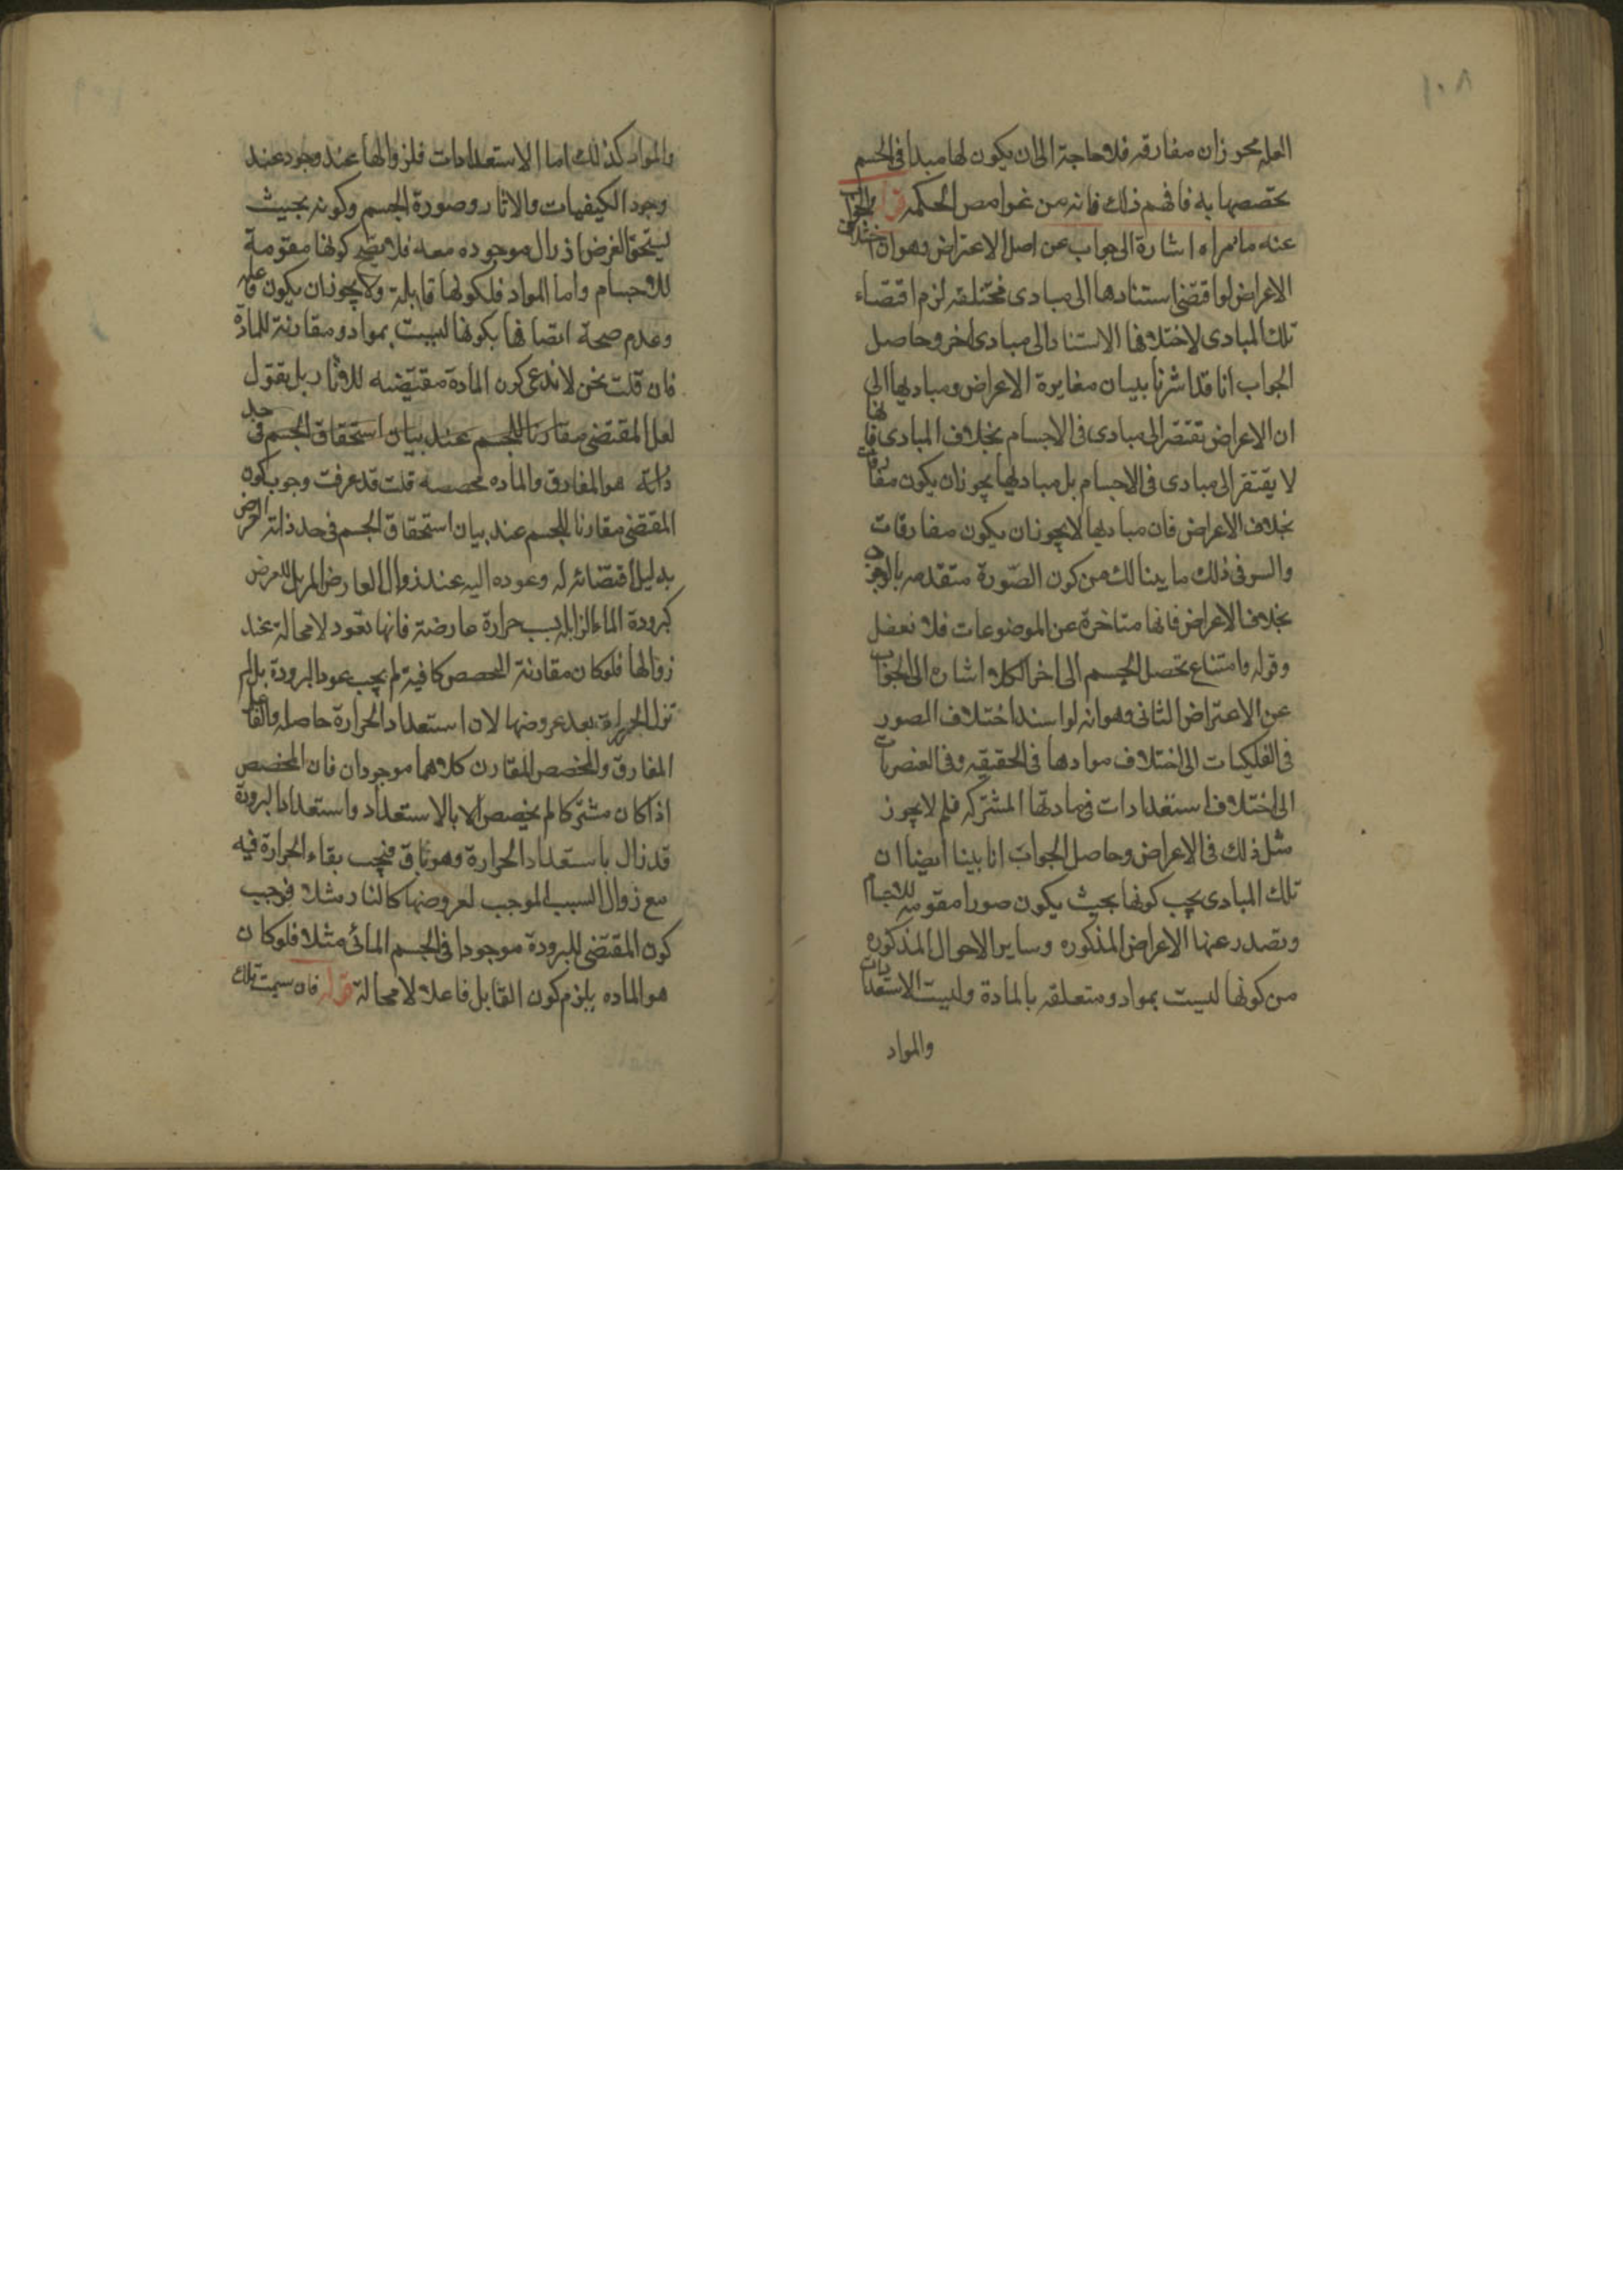 ١٠٨
العله محوزان مفارقه فلا حاجة الى ان يكون لها مبدأ فى الجسم
تخصصها به فافهم ذلك فانه من غوامص الحكمه قوله والجواب
عنه مامراه اشارة الى جواب عن اصل الاعتراض وهو ان اختلاف
الاعراض لو اقتضى استنادها الى مبادى مختلفه لزم اقتضاء
تلك المبادى لاختلافها الاستناد الى مبادى اخر وحاصل
الجواب انا قد اشرنا ببيان مغايرة الاعراض ومباديها الى
ان الاعراض تفتقر الى مبادى فى الاجسام بخلاف المبادى فانها
لا يفتقر الى مبادى فى الاجسام بل مباديها يجوز ان يكون مفارقات
بخلاف الاعراض فان مباديها لا يجوز ان يكون مفارقات
والسر فى ذلك ما بينا لك من كون الصّورة متقدمه بالوجود
بخلاف الاعراض فانها متاخرة عن الموضوعات فلا نعضل
وقوله وامتناع تحصل الجسم الى اخر الكلام اشاره الى الجواب
عن الاعتراض الثانى وهو انه لو اسند اختلاف الصور
فى الفلكيات الى اختلاف موادها فى الحقيقه وفى العنصريات
الى اختلاف استعدادات فى مادتها المشتركه فلم لا يجوز
مثل ذلك فى الاعراض وحاصل الجواب انا بينا ايضا ان
تلك المبادى يجب كونها بحيث يكون صورا مقومه للاجسام
وتصدر عنها الاعراض المذكوره وساير الاحوال المذكوره
من كونها ليست بمواد ومتعلقه بالمادة وليست الاستعدادات
والمواد
والمواد كذلك اما الاستعدادات فلزوالها عند وجود عند
وجود الكيفيات والاثار وصورة الجسم وكونه بحيث
يستحق الغرض اذ زال موجوده معه فلا يصح كونها مقومة
للاجسام واما المواد فلكونها قابلة ولا يجوز ان يكون فاعله
وعدم صحة اتصافها بكونها ليست بمواد ومقارنة للمادة
فان قلت نحن لا ندعى كون المادة مقتضيه للاثار بل نقول
لعل المقتضى مقارنا للجسم عند بيان استحقاق الجسم فى حد
ذاته هو المفارق والماده مخصصه قلت قد عرفت وجوب كون
المقتضى مقارنا للجسم عند بيان استحقاق الجسم فى حد ذاته العرض
بدليل اقتضائه له وعوده اليه عند زوال العارض المزيل للعرض
كبرودة الماء الزايله بسبب حرارة عارضة فانها تعود لا محالة عند
زوالها فلو كان مقارنة المخصص كافية لم يجب عود البرودة بل لم
تزل الحرارة بعد عروضها لان استعداد الحرارة حاصله والفاعل
المفارق والمخصص المقارن كلاهما موجودان فان المخصص
اذا كان مشتركا لم يخصص الا بالاستعداد واستعداد البرودة
قد زال باستعداد الحرارة وهو باق فيجب بقاء الحرارة فيه
مع زوال السبب الموجب لعروضها كالنار مثلا فوجب
كون المقتضى للبرودة موجودا فى الجسم المائى مثلا فلو كان
هو الماده يلزم كون القابل فاعلا لا محالة قوله فان سميت تلك